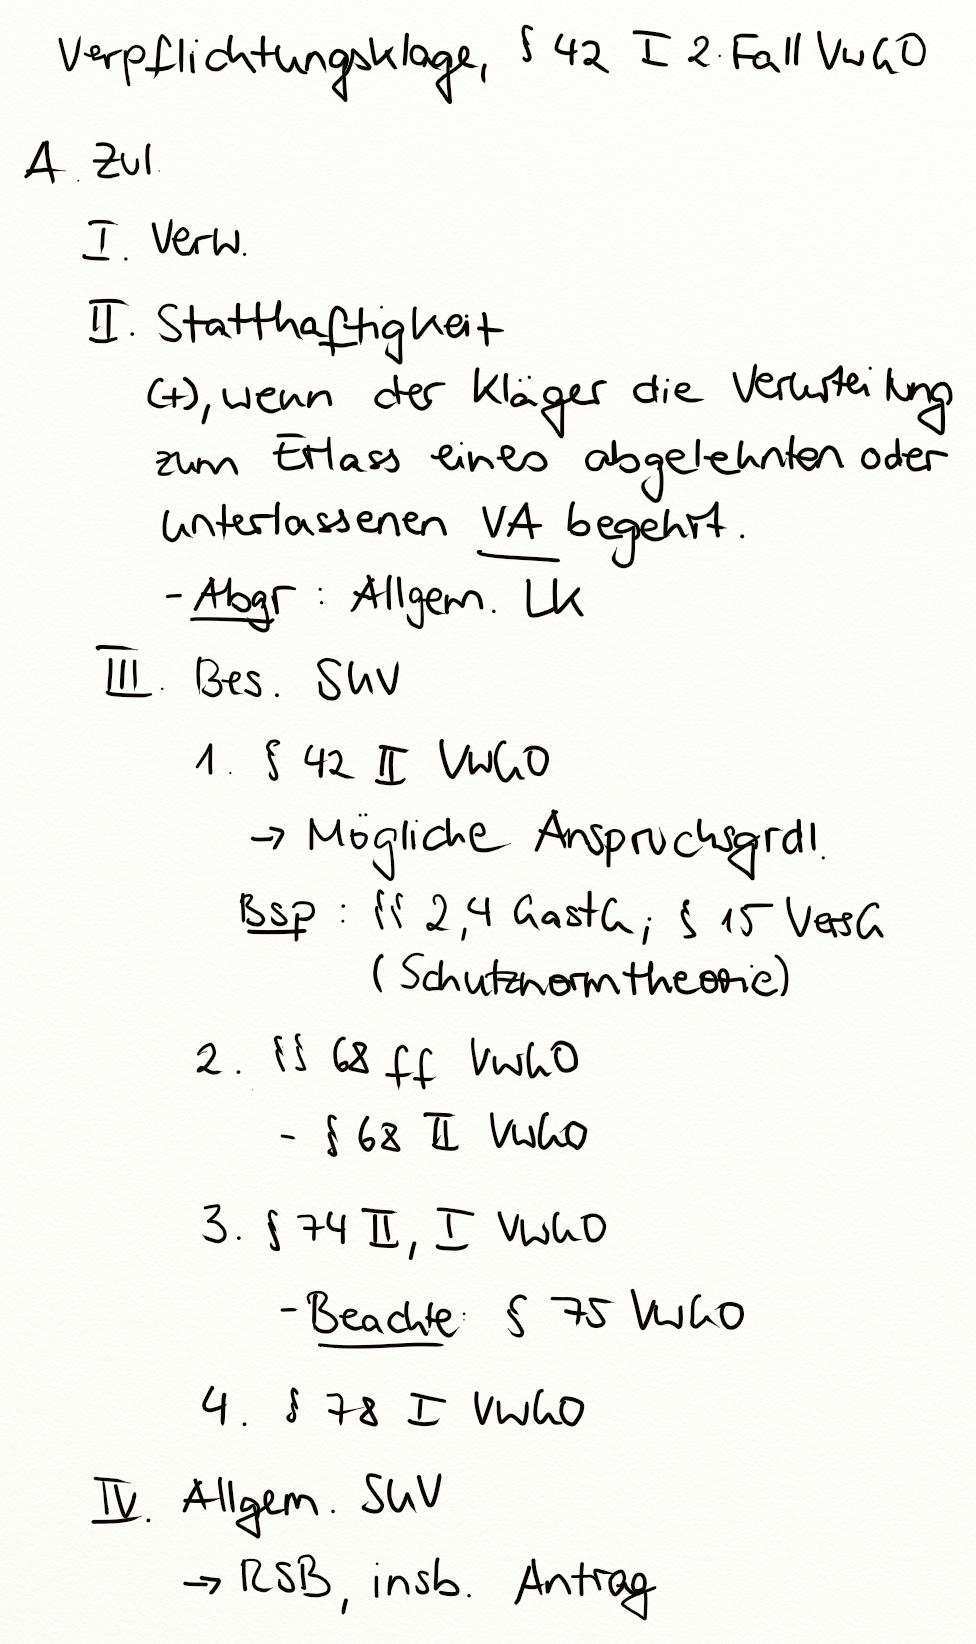 Verpflichtungsklage, § 42 I 2. Fall VwGO
A. Zul.
I. Verw.
II. Statthaftigkeit
(+), wenn der Kläger die Verurteilung
zum Erlass eines abgelehnten oder
unterlassenen VA begehrt.
- Abgr: Allgem. LK
III. Bes. SUV
1. § 42 II VwGO
→ Mögliche Anspruchsgrdl.
Bsp: §§ 2,4 GastG; § 15 VersG
(Schutznormtheorie)
2. §§ 68 ff VwGO
- § 68 II VwGO
3. § 74 II, I VwGO
- Beachte: § 75 VwGO
4. § 78 I VwGO
IV. Allgem. SUV
→ RSB, insb. Antrag